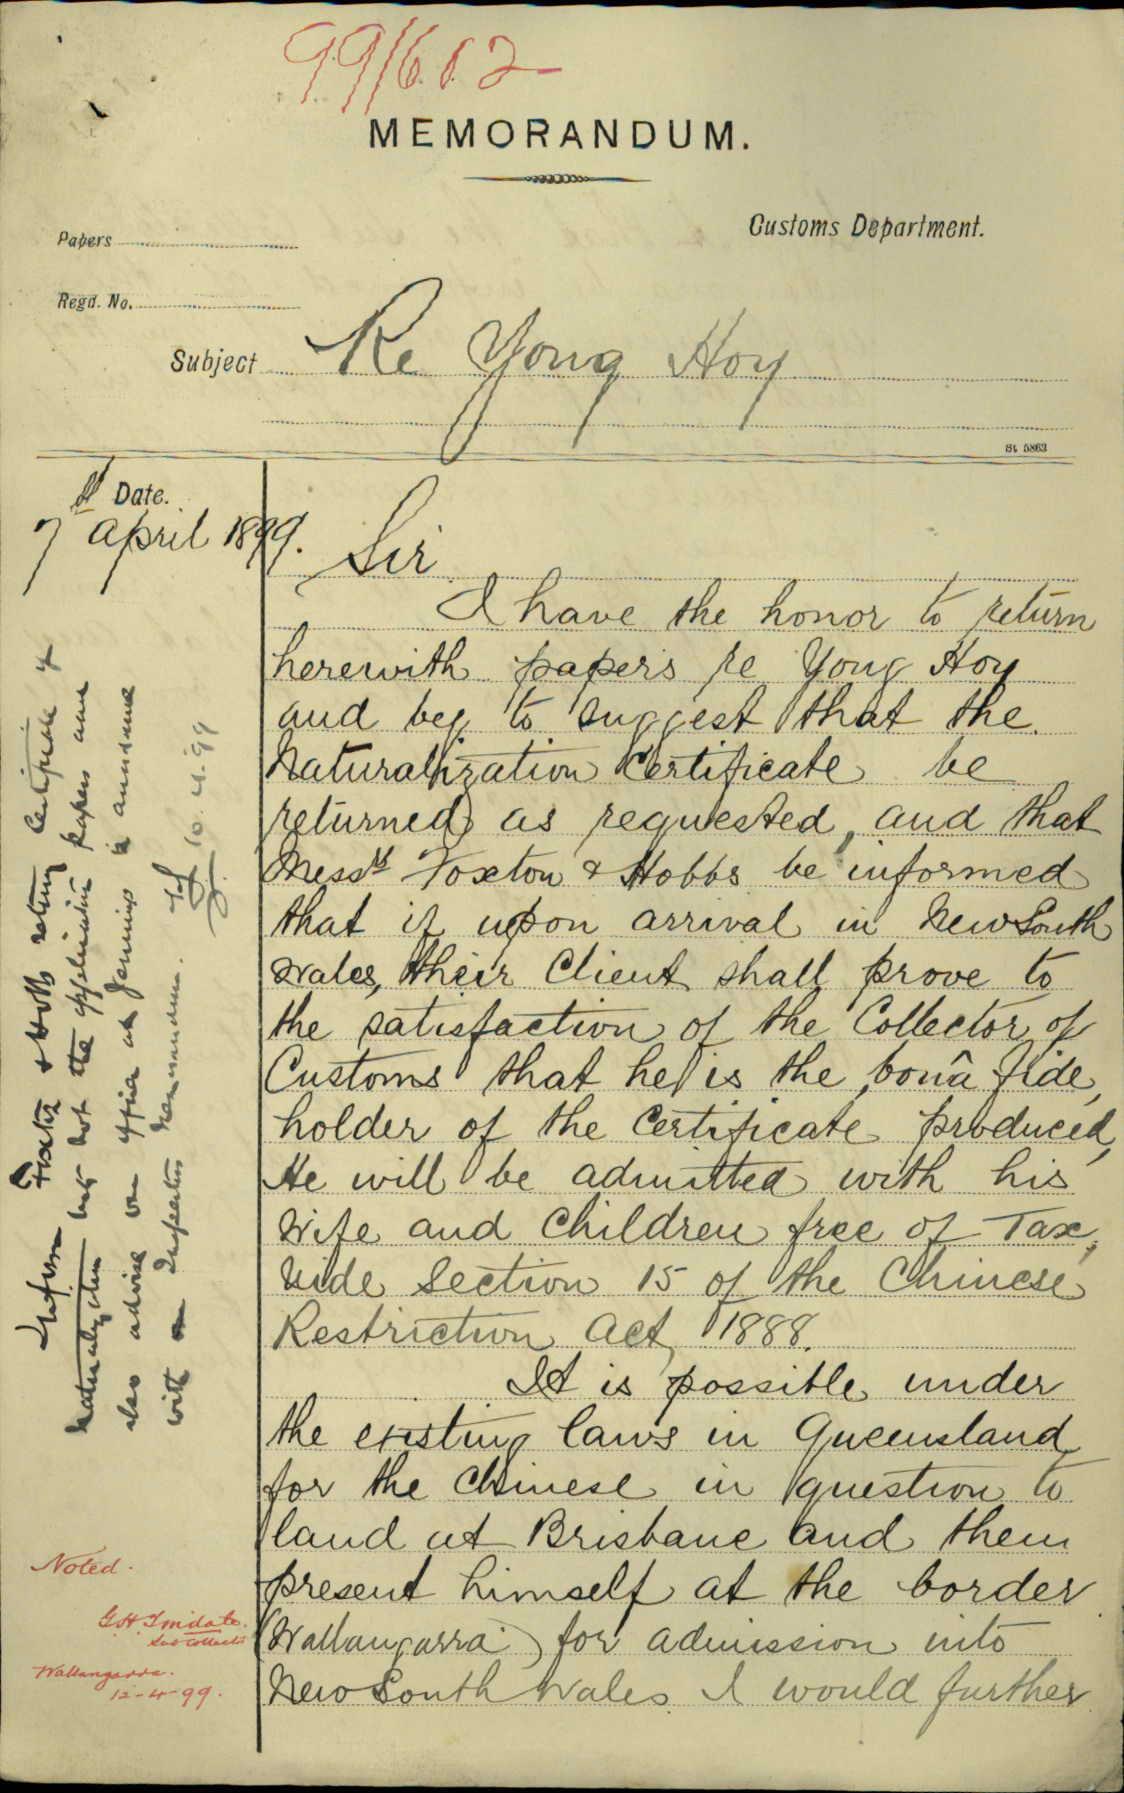 99/602
MEMORANDUM.
Customs Department.
Papers
Regd. No.
Subject Re Yong Hoy
St 5863
Date.
7 April 1899.
Sir
I have the honor to return
herewith papers re Yong Hoy
and beg to suggest that the
Naturalization Certificate be
returned as requested, and that
Messrs Foxton & Hobbs be informed
that if upon arrival in New South
Wales, their Client shall prove to
the satisfaction of the Collector of
Customs that he is the bonâ fide,
holder of the Certificate produced,
He will be admitted with his
Wife and Children free of Tax,
Vide Section 15 of the Chinese
Restriction Act, 1888.
It is possible under
the existing laws in Queensland
for the Chinese in question to
land at Brisbane and them
present himself at the border
(Wallangarra) for admission into
New South Wales. I would further
Inform Foxton & Hobbs return Certificate of
Naturalization but not the application papers and
also advise our officer at Jennings in accordance
with Inspectors Memorandum.
10.4.99
Noted.
G.H. Tindale.
Sub Collector
Wallangarra.
12-4-99.